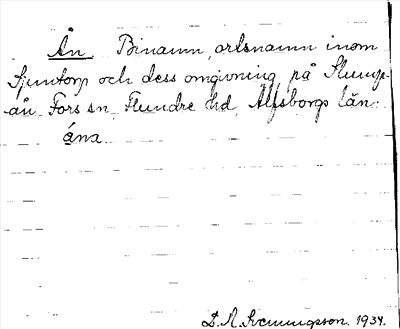 Ån Binamn, ortsnamn inom
Sjuntorp och dess omgivning på Slump-
ån Fors sn, Flundre hd, Älfsborgs län:
åna
D. A. Svenningsson. 1934.